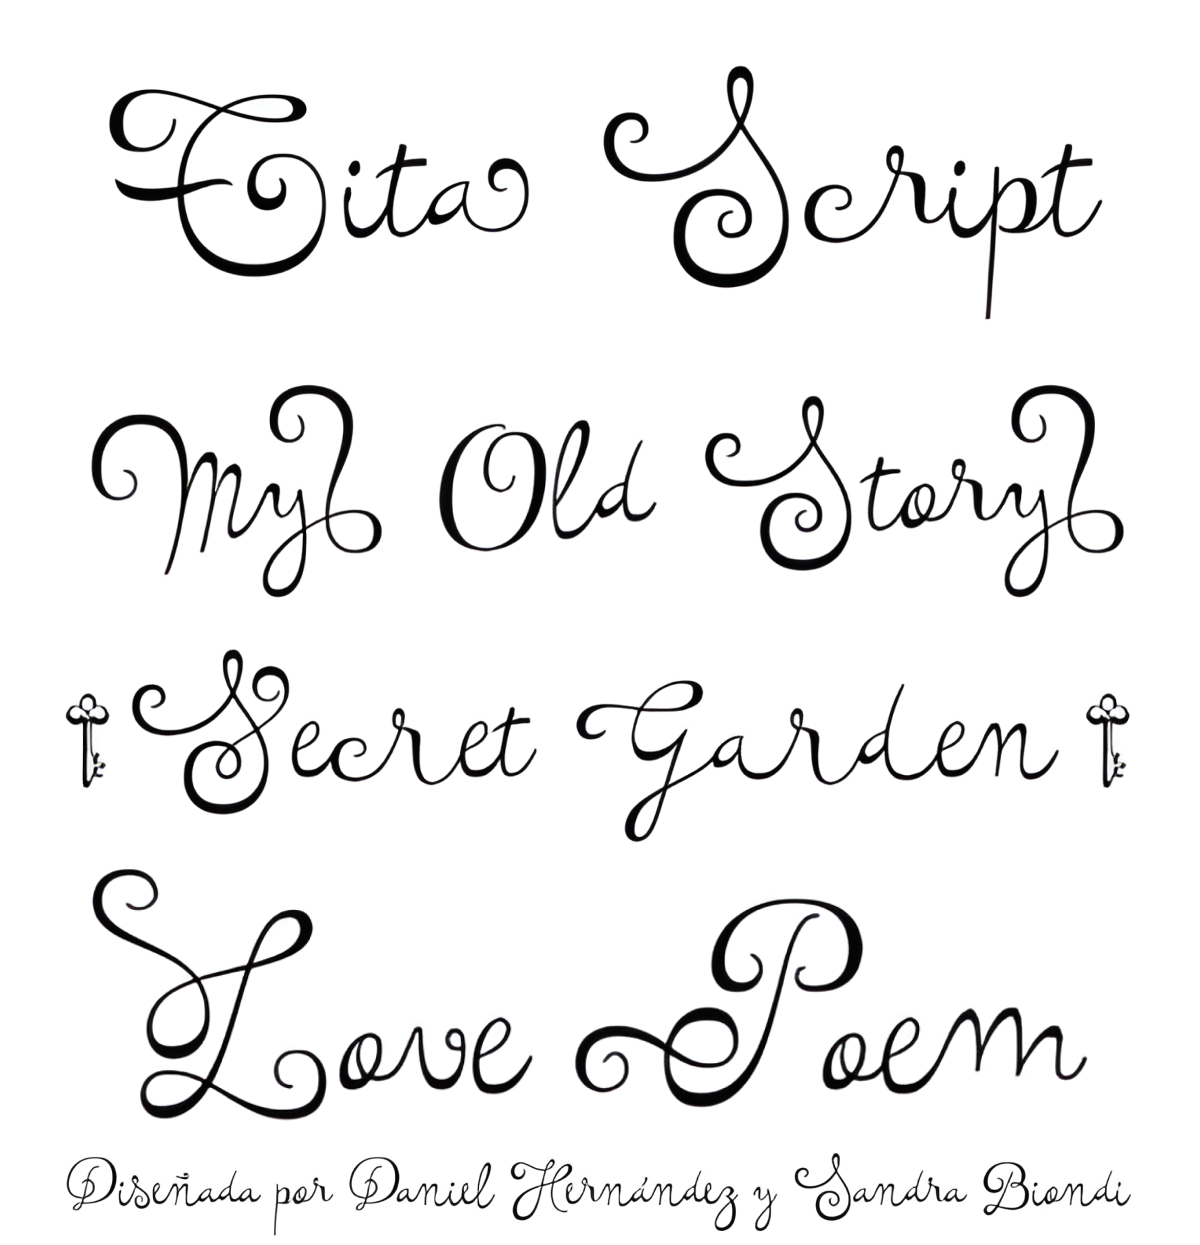 Tita Script
My Old Story
Secret Garden
Love Poem
Diseñada por Daniel Hernández y Sandra Biondi